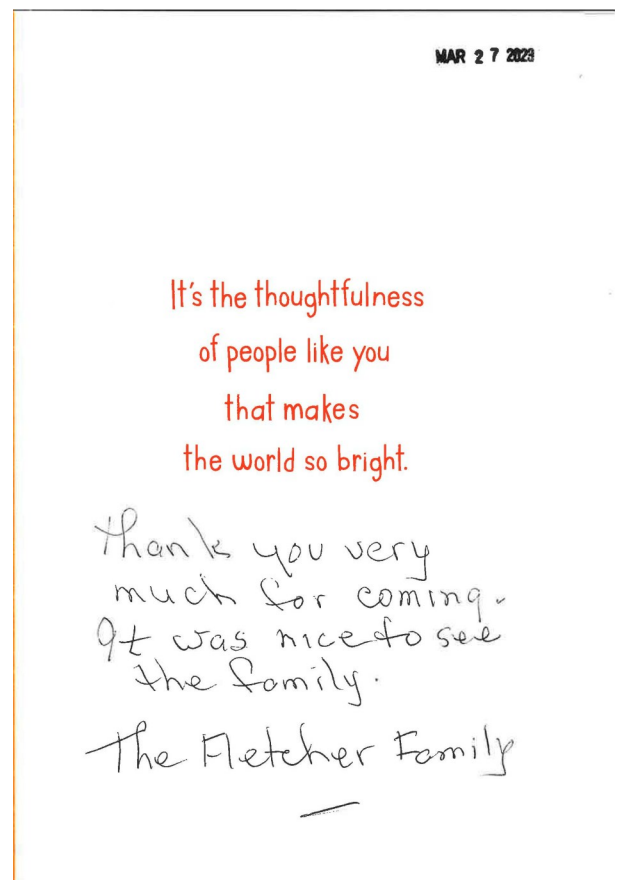 MAR 27 2023
It's the thoughtfulness
of people like you
that makes
the world so bright.
Thank you very
much for coming.
It was nice to see
the family.
The Fletcher Family